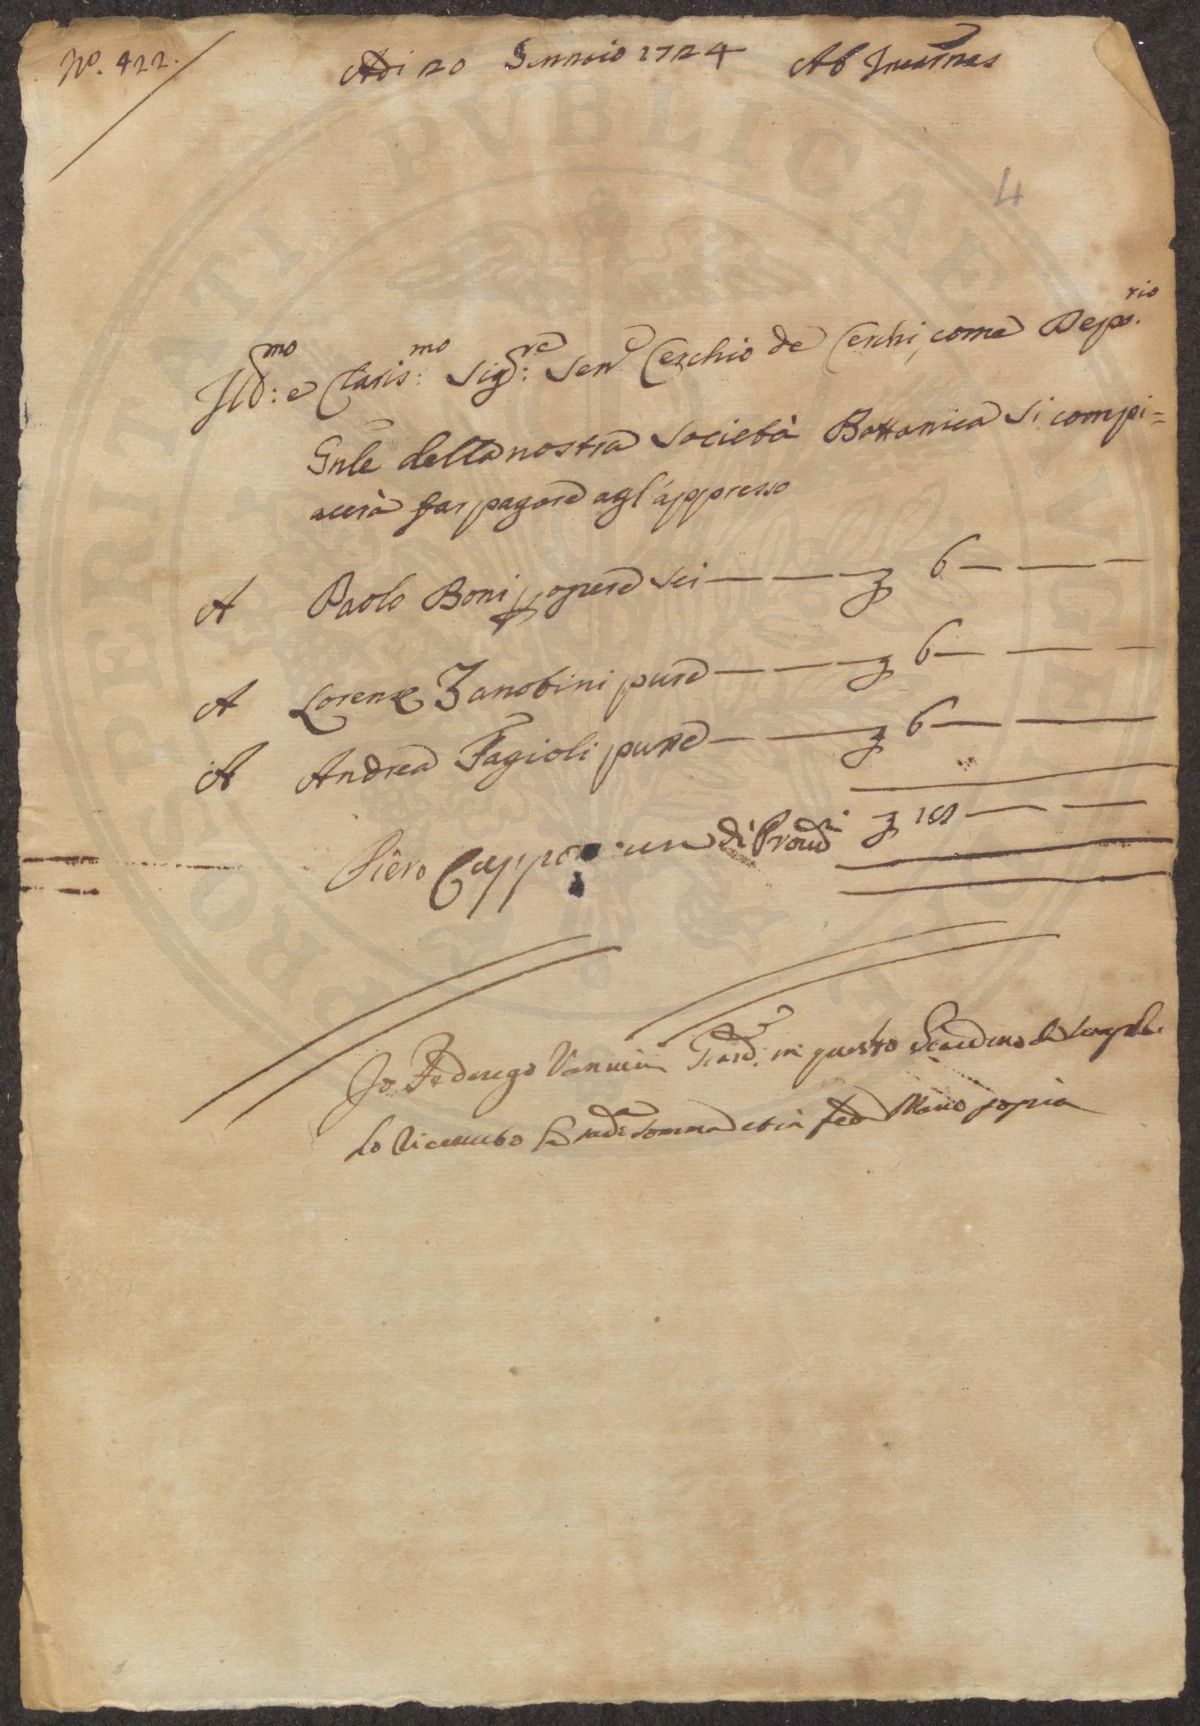 No. 422.
Adi 20 Gennaio 1724 Ab Incarnas
4
Ill:mo e Claris:mo Sig:re Sen.e Cerchio de Cerchi, come Depo.rio
Gnle della nostra Società Bottanica si compi=
acerà far pagare agl'appresso
A Paolo Boni p opere sei — — — 6 — — —
A Lorenzo Zanobini pure — — — 6 — — —
A Andrea Fagioli pure — — — 6 — —
Piero Capponi un di Proud.ri 18 — — —
Io Federigo Vannini Giard.re in questo Giardino de Sempli
ho riceuto la sud.a somma
 Mano propia
PROSPERITATI PVBLICAE